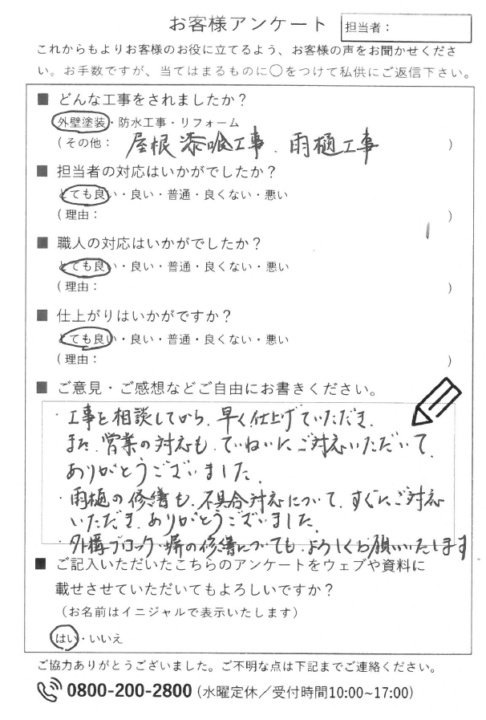 お客様アンケート
担当者：
これからもよりお客様のお役に立てるよう、お客様の声をお聞かせくださ
い。お手数ですが、当てはまるものに〇をつけて私供にご返信下さい。
■ どんな工事をされましたか？
外壁塗装・防水工事・リフォーム
（その他： 屋根漆喰工事、雨樋工事 ）
■ 担当者の対応はいかがでしたか？
とても良い・良い・普通・良くない・悪い
（理由： ）
■ 職人の対応はいかがでしたか？
とても良い・良い・普通・良くない・悪い
（理由： ）
■ 仕上がりはいかがですか？
とても良い・良い・普通・良くない・悪い
（理由： ）
■ ご意見・ご感想などご自由にお書きください。
・工事を相談してから、早く仕上げていただき、
また、営業の対応も、ていねいにご対応いただいて、
ありがとうございました。
・雨樋の修繕も、不具合対応について、すぐにご対応
いただき、ありがとうございました。
・外構ブロック塀の修繕についても、よろしくお願いいたします
■ ご記入いただいたこちらのアンケートをウェブや資料に
載せさせていただいてもよろしいですか？
（お名前はイニジャルで表示いたします）
はい・いいえ
ご協力ありがとうございました。ご不明な点は下記までご連絡ください。
0800-200-2800（水曜定休／受付時間10:00~17:00）